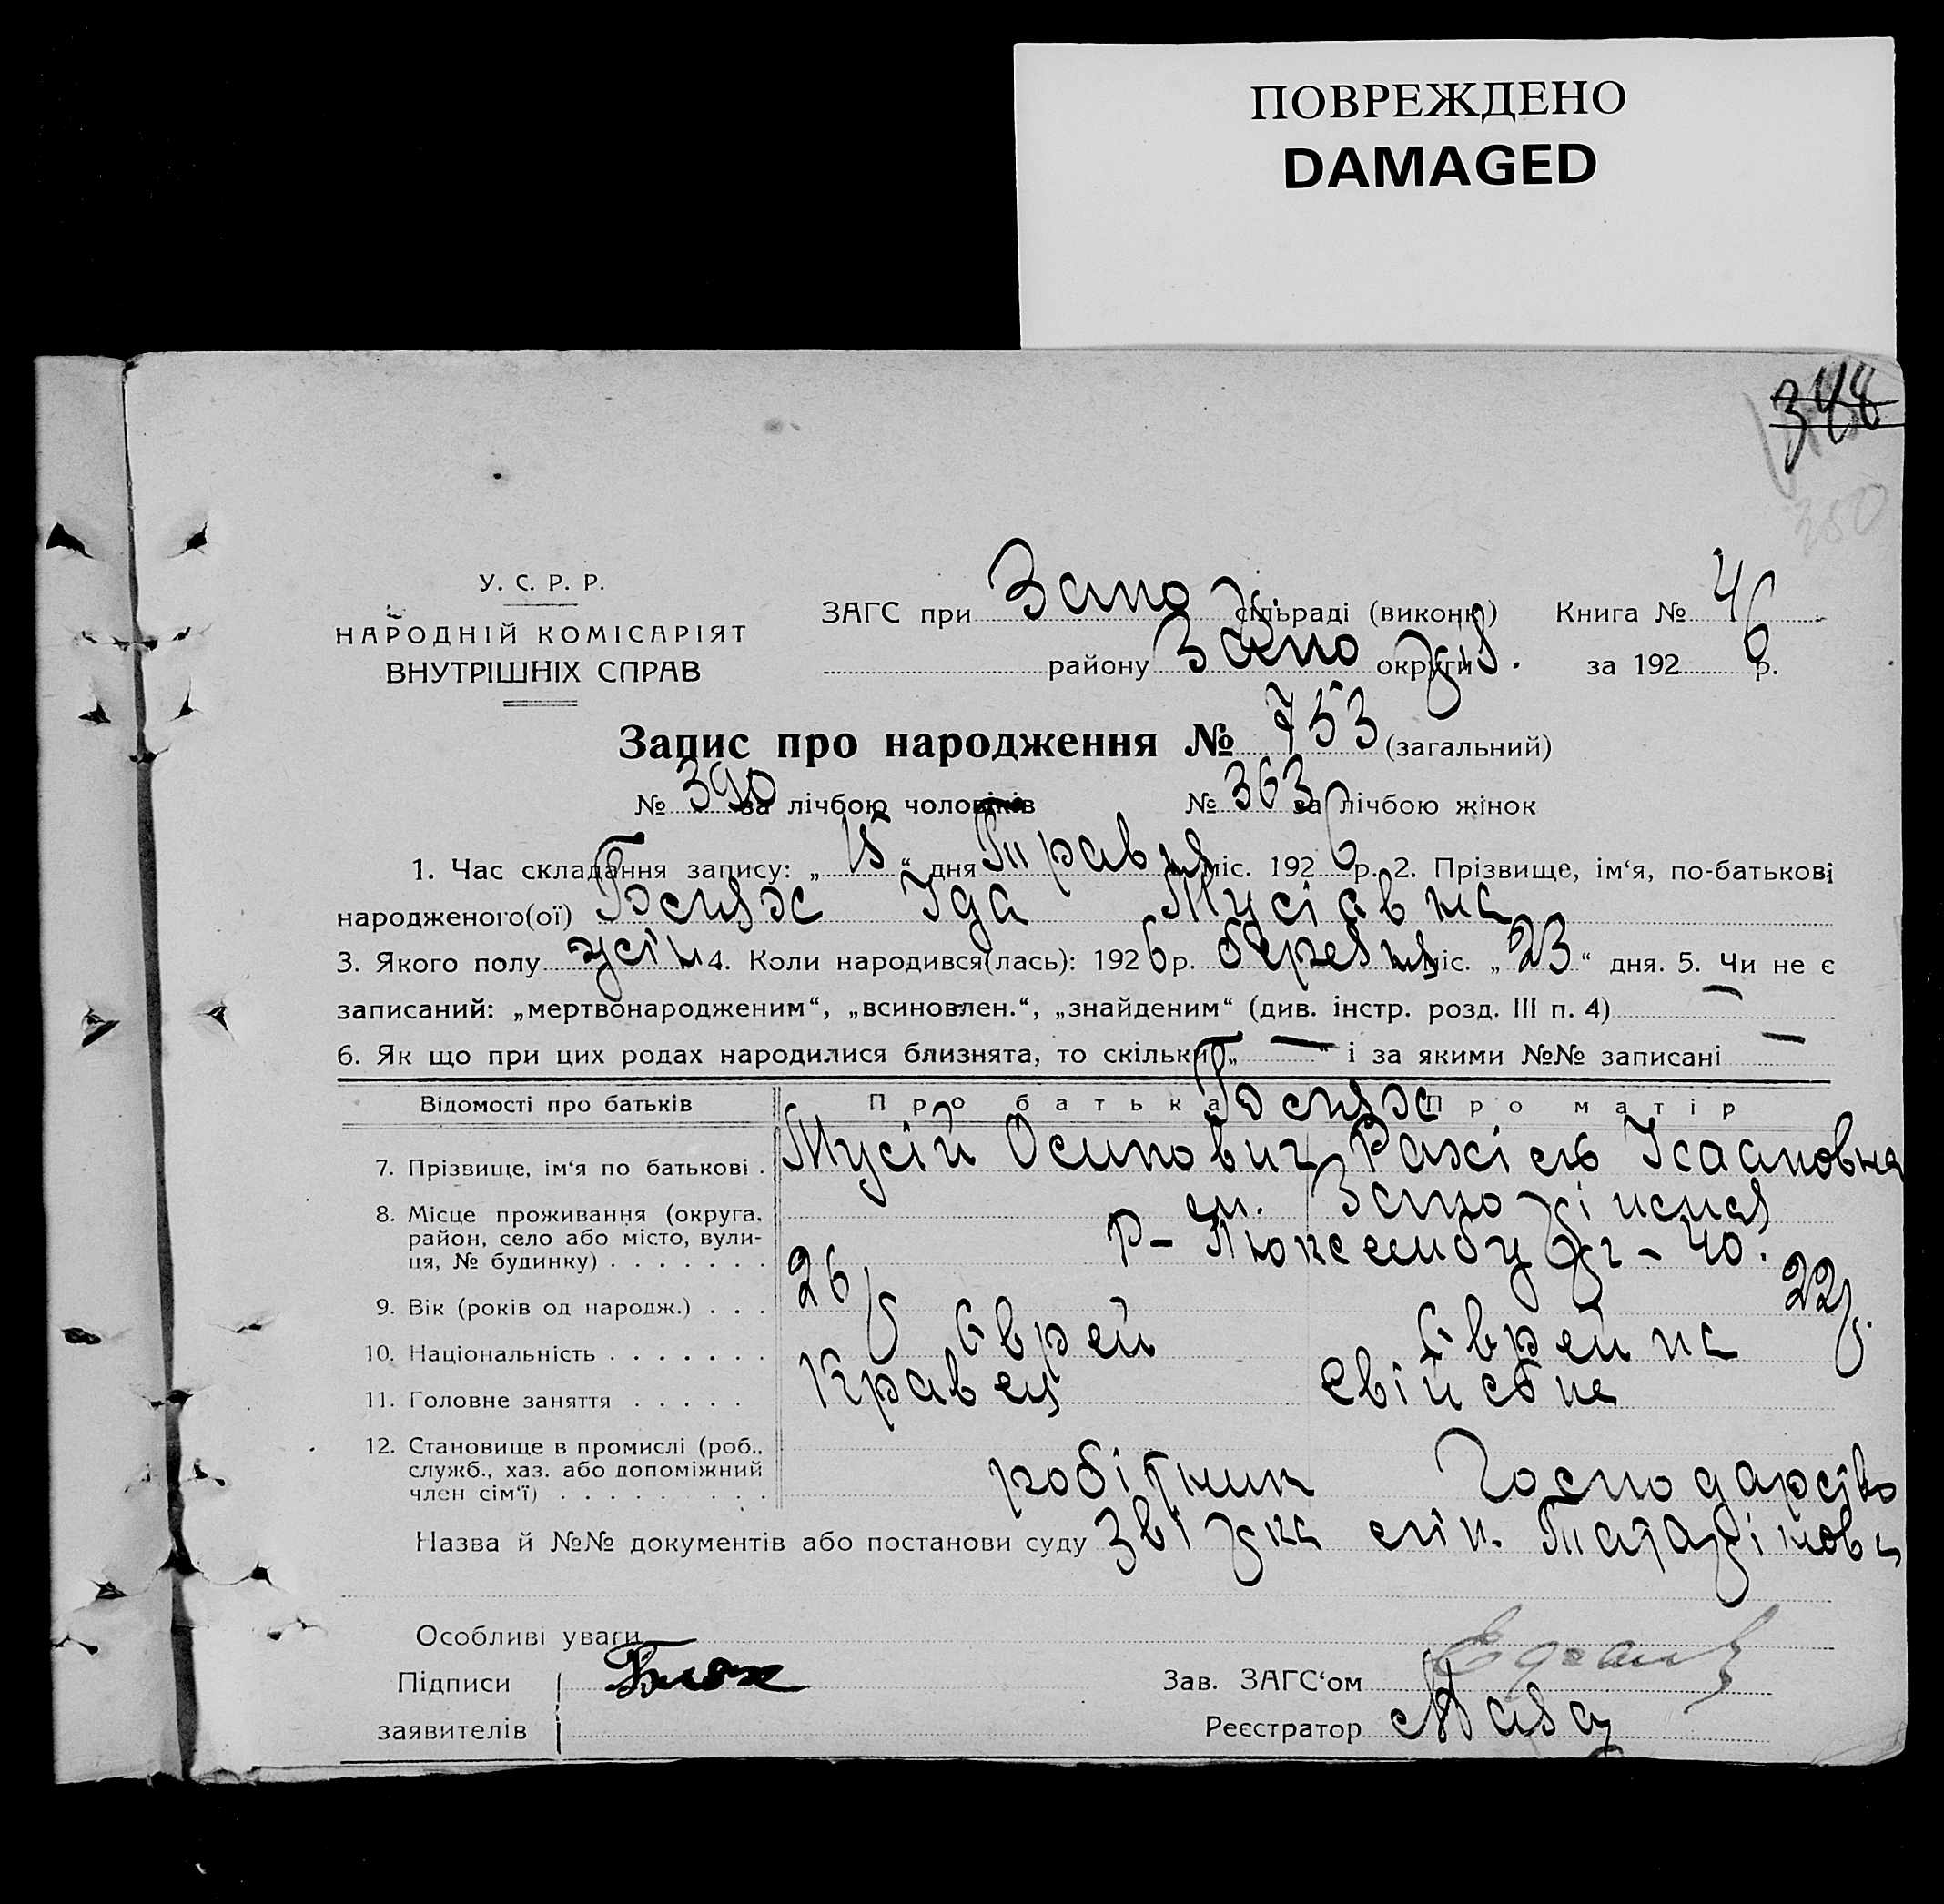 ПОВРЕЖДЕНО
DAMAGED
348
350
У. С. Р. Р.
НАРОДНІЙ КОМІСАРІЯТ
ВНУТРІШНІХ СПРАВ
ЗАГС при Запо сільраді (виконк) Книга № 4
району Запо округи за 1926 р.
Запис про народження № 753 (загальний)
№ 390 за лічбою чоловіків № 363 за лічбою жінок
1. Час складання запису: „15“ дня Травня міс. 1926 р. 2. Прізвище, ім‘я, по-батькові
народженого(ої) Іда Мусіавна
3. Якого полу жін 4. Коли народився(лась): 1926 р. березня міс. „23“ дня. 5. Чи не є
записаний: „мертвонародженим“, „всиновлен.“, „знайденим“ (див. інстр. розд. III п. 4) —
6. Як що при цих родах народилися близнята, то скільки „—“ і за якими №№ записані —
Відомості про батьків Про батька Про матір
7. Прізвище, ім‘я по батькові . Мусій Осипович Рахіль Ісааковна
8. Місце проживання (округа, район, село або місто, вулиця, № будинку) . . . . . . . м. Запоріжжя
Р-Люксембург-40.
9. Вік (років од народж.) . . . 26 р 22 р.
10. Національність . . . . . . . Єврей Єврейка
11. Головне заняття . . . . . Кравец Свійське
12. Становище в промислі (роб., служб., хаз. або допоміжний член сім‘ї) . . . . . . . . . робітник Господарство
Назва й №№ документів або постанови суду
Особливі уваги
Підписи
Зав. ЗАГС‘ом
заявителів
Реєстратор